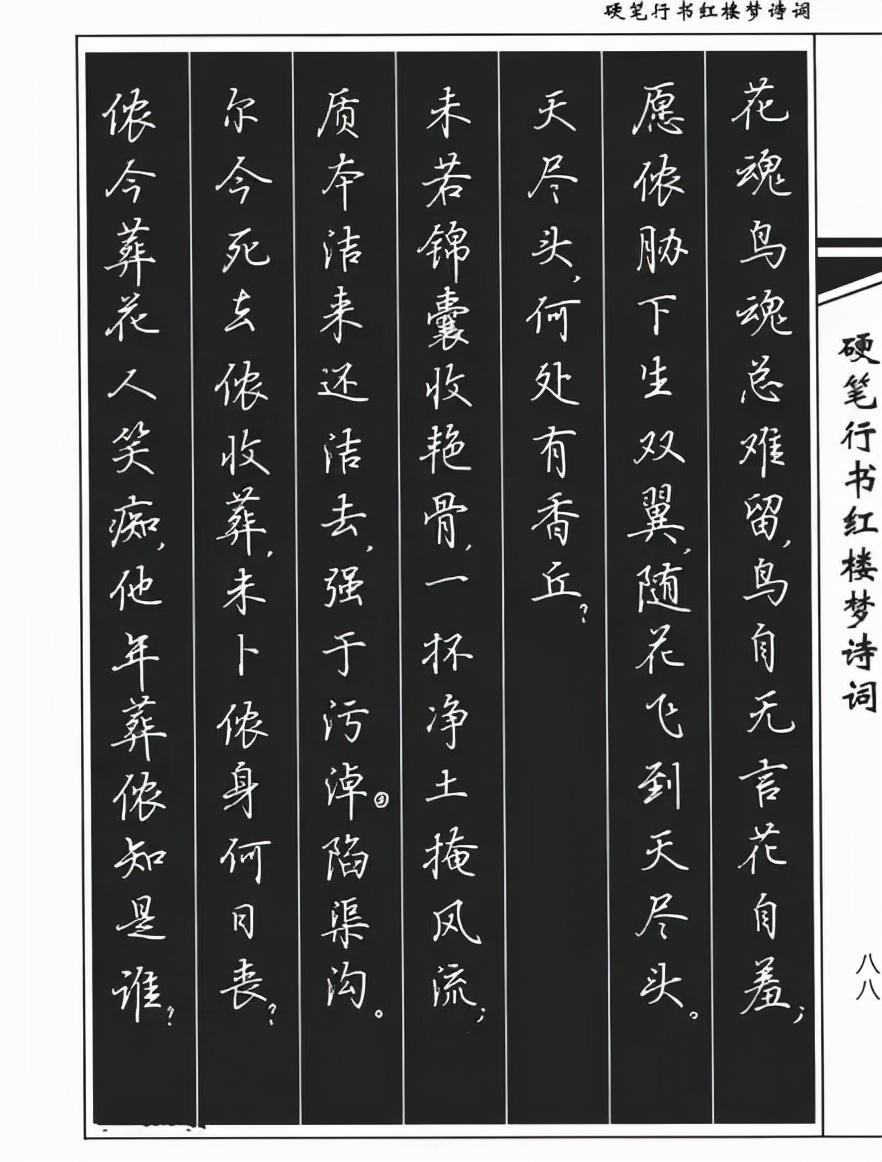 硬笔行书红楼梦诗词
花魂鸟魂总难留,鸟自无言花自羞;
愿侬胁下生双翼,随花飞到天尽头。
天尽头,何处有香丘?
未若锦囊收艳骨,一抔净土掩风流;
质本洁来还洁去,强于污淖③陷渠沟。
尔今死去侬收葬,未卜侬身何日丧?
侬今葬花人笑痴,他年葬侬知是谁?
硬笔行书红楼梦诗词
八八